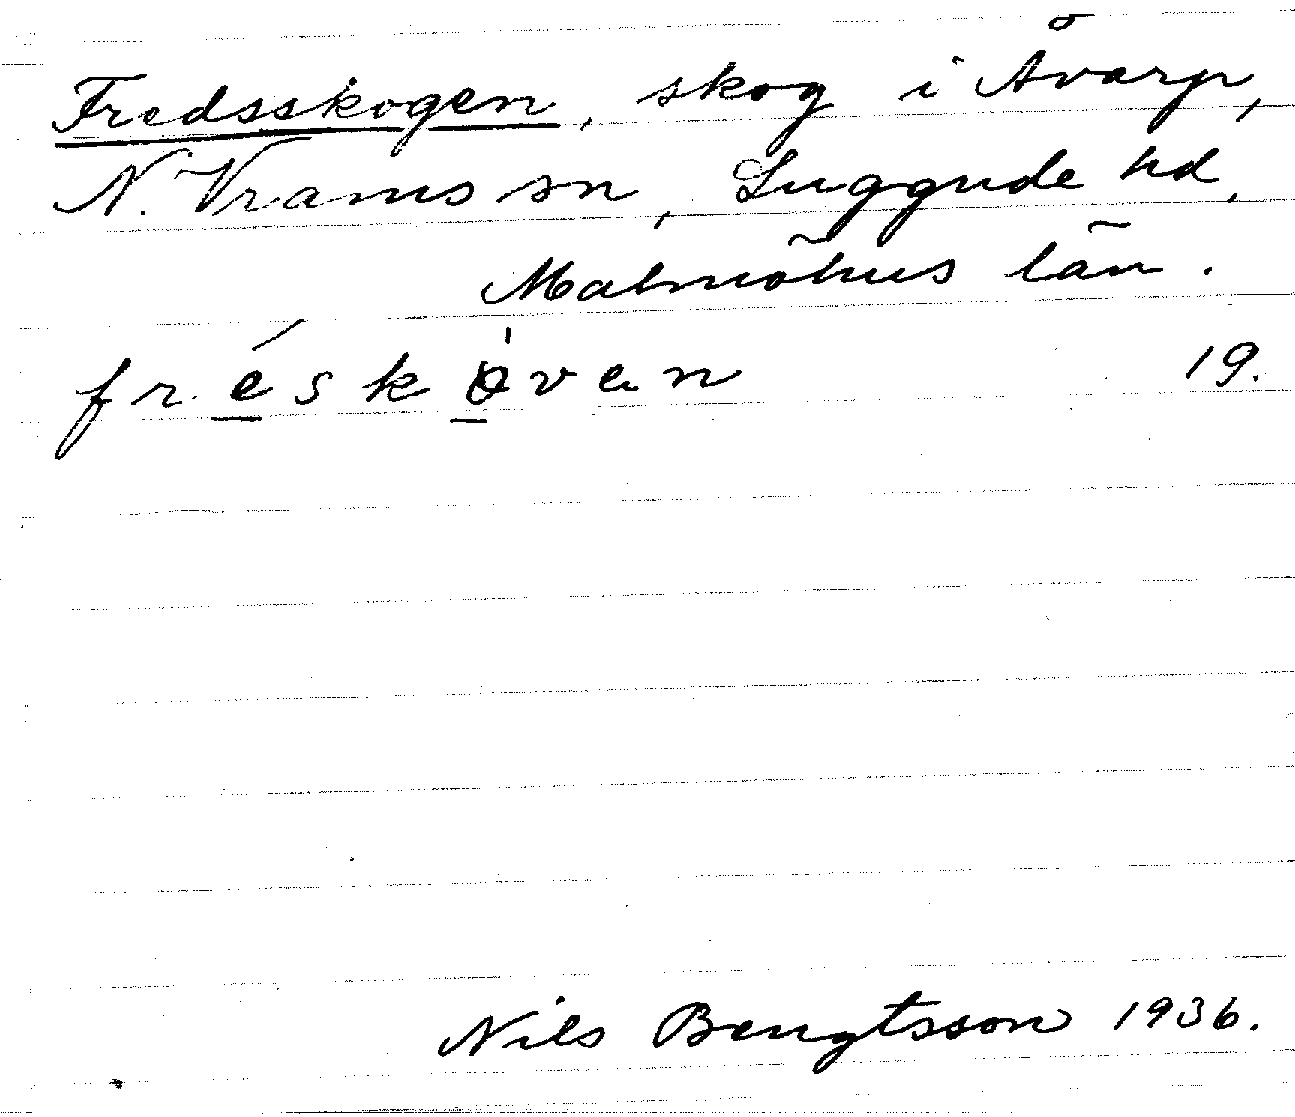 Fredsskogen, skog i Åvarp,
N. Vrams sn, Luggude hd,
Malmöhus län.
fréskòven 19.
Nils Bengtsson 1936.